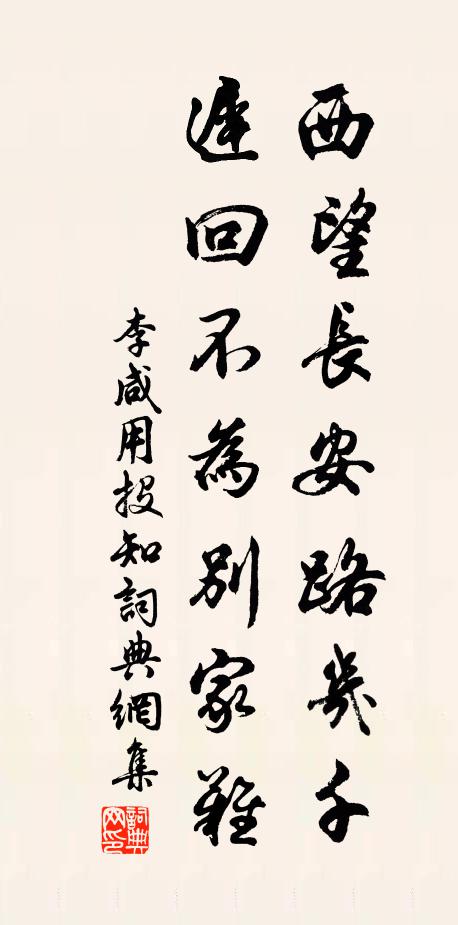 西望長安路幾千
遲回不為別家難
李咸用投知詞典網集
詞典网印